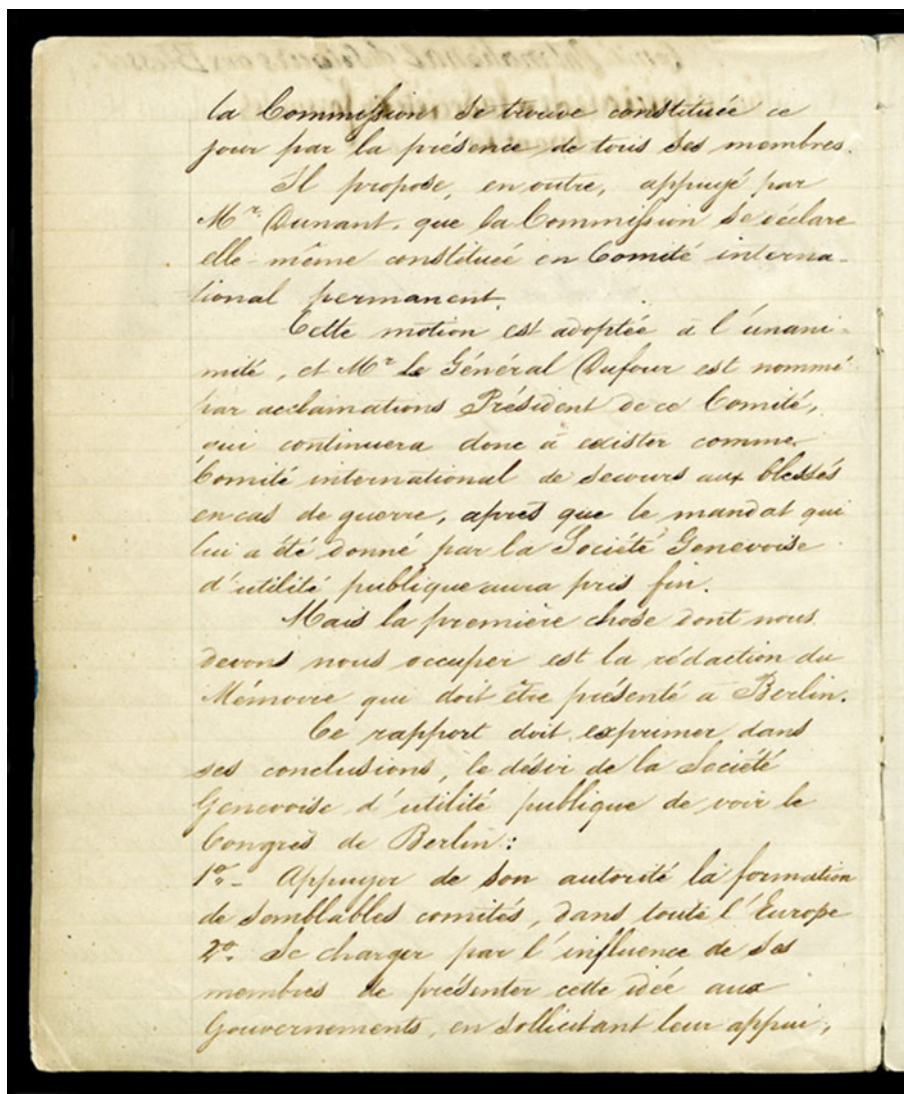 la Commission se trouve constituée ce
jour par la présence de tous ses membres.
Il propose, en outre, appuyé par
Mr. Dunant, que la Commission se déclare
elle-même constituée en Comité interna-
tional permanent.
Cette motion est adoptée à l'unani-
mité, et Mr le Général Dufour est nommé
par acclamations Président de ce Comité,
qui continuera donc à exister comme
Comité international de secours aux blessés
en cas de guerre, après que le mandat qui
lui a été donné par la Société Genevoise
d'utilité publique aura pris fin.
Mais la première chose dont nous
devons nous occuper est la rédaction du
Mémoire qui doit être présenté à Berlin.
Ce rapport doit exprimer, dans
ses conclusions, le désir de la Société
Genevoise d'utilité publique de voir le
Congrès de Berlin:
1o- Appuyer de son autorité la formation
de semblables comités, dans toute l'Europe
2o- Se charger par l'influence de ses
membres de présenter cette idée aux
Gouvernements, en sollicitant leur appui,